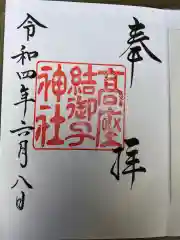 奉拝
高座
結御子
神社
令和四年六月八日